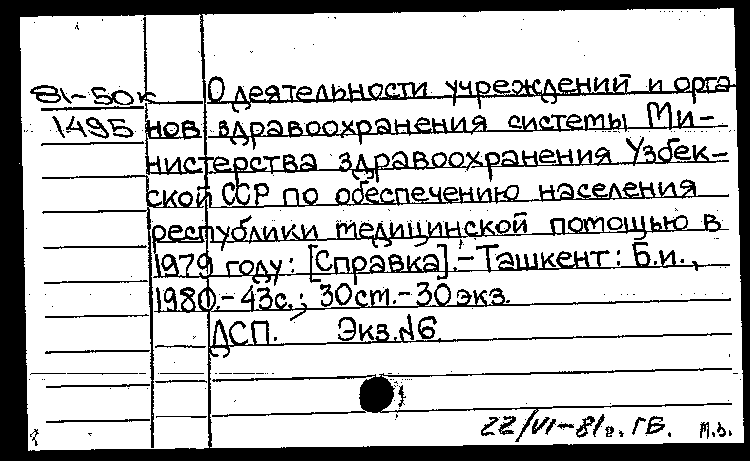 81-50к О деятельности учреждений и орга
1495 нов здравоохранения системы Ми-
нистерства здравоохранения Узбек-
ской ССР по обеспечению населения
республики медицинской помощью в
1979 году: [Справка].-Ташкент: Б.и.,
1980.-43с.; 30см.-30экз.
ДСП. Экз.№6.
22/VI-81г. ГБ. М.З.